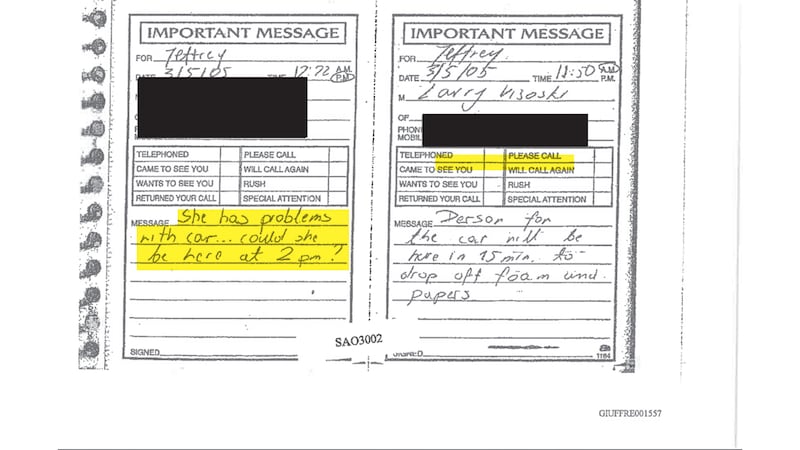 IMPORTANT MESSAGE
FOR Jeffrey
DATE 3/5/05 TIME A.M. P.M.
M
TELEPHONED PLEASE CALL
CAME TO SEE YOU WILL CALL AGAIN
WANTS TO SEE YOU RUSH
RETURNED YOUR CALL SPECIAL ATTENTION
MESSAGE She has problems
with car... could she
be here at 2 pm?
SIGNED
IMPORTANT MESSAGE
FOR Jeffrey
DATE 3/5/05 TIME 11:50 A.M. P.M.
M Larry Visoski
OF
PHONE
MOBILE
TELEPHONED PLEASE CALL
CAME TO SEE YOU WILL CALL AGAIN
WANTS TO SEE YOU RUSH
RETURNED YOUR CALL SPECIAL ATTENTION
MESSAGE Person for
the car will be
here in 15 min. to
drop off foam and
papers
SIGNED
1184
SAO3002
GIUFFRE001557